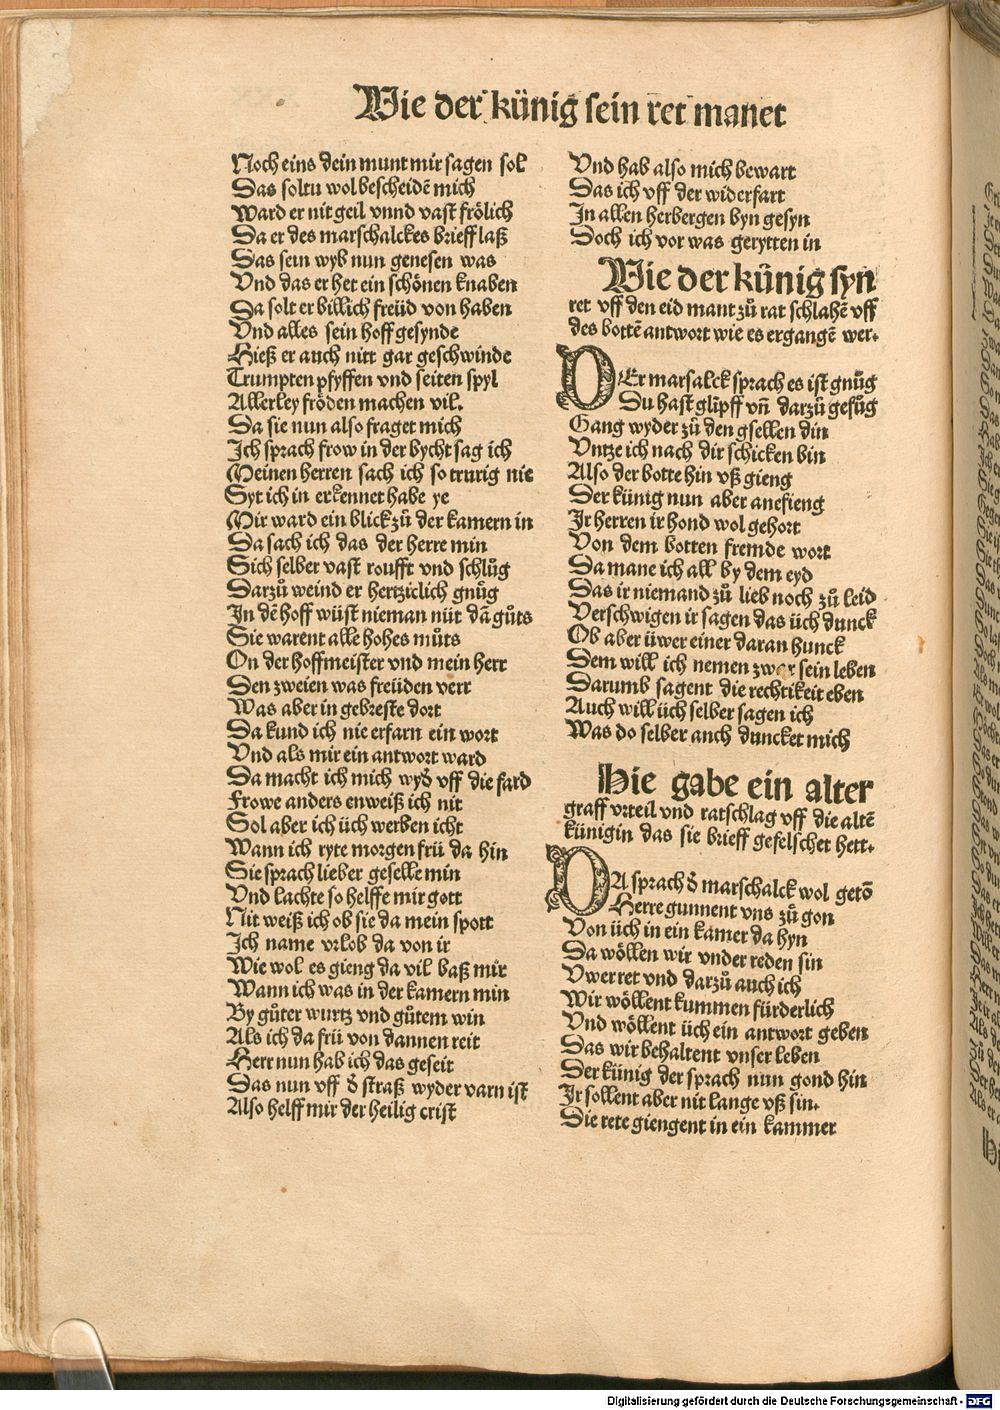 Wie der künig sein ret manet
Noch eins dein munt mir sagen sol
Das soltu wol bescheidē mich
Ward er nit geil vnnd vast frölich
Da er des marschalckes brieff laß
Das sein wyb nun genesen was
Vnd das er het ein schönen knaben
Da solt er billich freüd von haben
Vnd alles sein hoff gesynde
Hieß er auch nitt gar geschwinde
Trumpten pfyffen vnd seiten spyl
Allerley fröden machen vil.
Da sie nun also fraget mich
Ich sprach frow in der bycht sag ich
Meinen herren sach ich so trurig nie
Syt ich in erkennet habe ye
Mir ward ein blick zů der kamern in
Da sach ich das der herre min
Sich selber vast roufft vnd schlůg
Darzů weind er hertziclich gnůg
In dē hoff wüst nieman nüt dā gůts
Sie warent alle hohes můts
On der hoffmeister vnd mein herr
Den zweien was freüden verr
Was aber in gebreste dort
Da kund ich nie erfarn ein wort
Vnd als mir ein antwort ward
Da macht ich mich wyd̕ vff die fard
Frowe anders enweiß ich nit
Sol aber ich üch werben icht
Wann ich ryte morgen frü da hin
Sie sprach lieber geselle min
Vnd lachte so helffe mir gott
Nit weiß ich ob sie da mein spott
Ich name vrlob da von ir
Wie wol es gieng da vil baß mir
Wann ich was in der kamern min
By gůter wurtz vnd gůtem win
Als ich da frü von dannen reit
Herr nun hab ich das geseit
Das nun vff d̕ straß wyder varn ist
Also helff mir der heilig crist
Vnd hab also mich bewart
Das ich vff der widerfart
In allen herbergen byn gesyn
Doch ich vor was gerytten in
Wie der künig syn
ret vff den eid mant zů rat schlahē vff
des bottē antwort wie es ergangē wer.
DEr marsalck sprach es ist gnůg
Du hast glĭpff vn̄ darzů gefůg
Gang wyder zů den gsellen din
Vntze ich nach dir schicken bin
Also der botte hin vß gieng
Der künig nun aber anefieng
Ir herren ir hond wol gehort
Von dem botten fremde wort
Da mane ich all by dem eyd
Das ir niemand zů lieb noch zů leid
Verschwigen ir sagen das üch dunck
Ob aber üwer einer daran hunck
Dem will ich nemen zwar sein leben
Darumb sagent die rechtikeit eben
Auch will üch selber sagen ich
Was do selber auch duncket mich
Hie gabe ein alter
graff vrteil vnd ratschlag vff die altē
künigin das sie brieff gefelschet hett.
DA sprach d̕ marschalck wol getō
Herre gunnent vns zů gon
Von üch in ein kamer da hyn
Da wöllen wir vnder reden sin
Vwer ret vnd darzů auch ich
Wir wöllent kummen fürderlich
Vnd wöllent üch ein antwort geben
Das wir behaltent vnser leben
Der künig der sprach nun gond hin
Ir sollent aber nit lange vß sin.
Die rete giengent in ein kammer
Digitalisierung gefördert durch die Deutsche Forschungsgemeinschaft - DFG